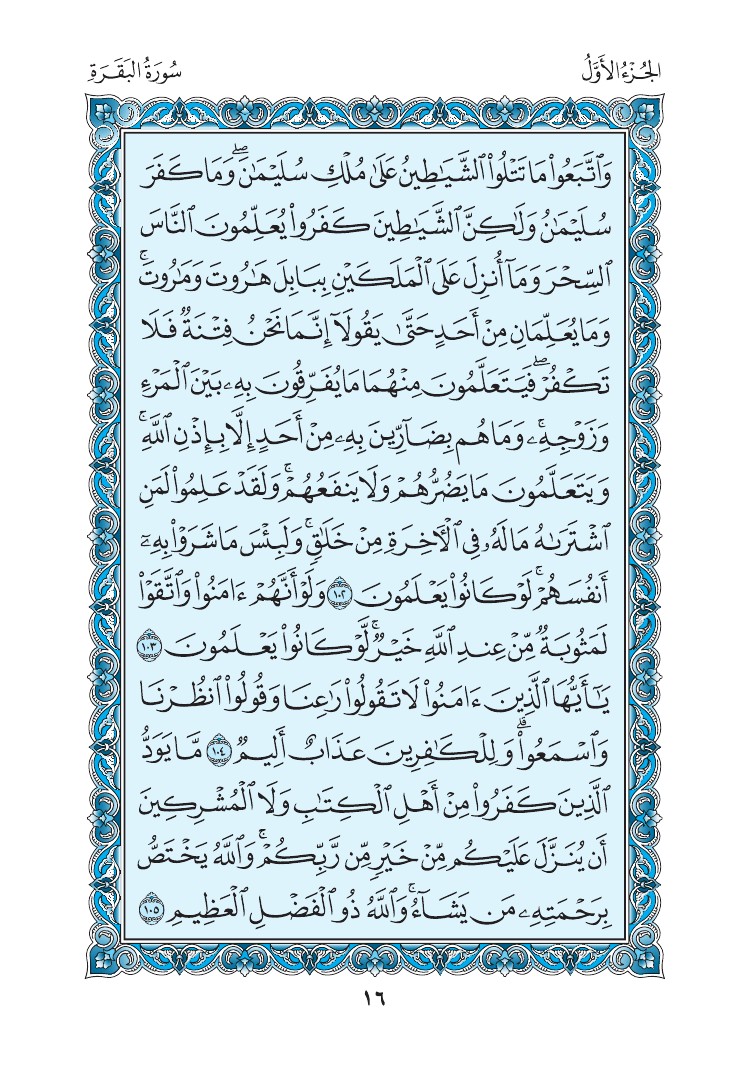 الجُزْءُ الأَوَّلُ
سُورَةُ البَقَرَةِ
وَٱتَّبَعُوا۟ مَا تَتْلُوا۟ ٱلشَّيَٰطِينُ عَلَىٰ مُلْكِ سُلَيْمَٰنَۖ وَمَا كَفَرَ
سُلَيْمَٰنُ وَلَٰكِنَّ ٱلشَّيَٰطِينَ كَفَرُوا۟ يُعَلِّمُونَ ٱلنَّاسَ
ٱلسِّحْرَ وَمَآ أُنزِلَ عَلَى ٱلْمَلَكَيْنِ بِبَابِلَ هَٰرُوتَ وَمَٰرُوتَۚ
وَمَا يُعَلِّمَانِ مِنْ أَحَدٍ حَتَّىٰ يَقُولَآ إِنَّمَا نَحْنُ فِتْنَةٌ فَلَا
تَكْفُرْۖ فَيَتَعَلَّمُونَ مِنْهُمَا مَا يُفَرِّقُونَ بِهِۦ بَيْنَ ٱلْمَرْءِ
وَزَوْجِهِۦۚ وَمَا هُم بِضَآرِّينَ بِهِۦ مِنْ أَحَدٍ إِلَّا بِإِذْنِ ٱللَّهِۚ
وَيَتَعَلَّمُونَ مَا يَضُرُّهُمْ وَلَا يَنفَعُهُمْۚ وَلَقَدْ عَلِمُوا۟ لَمَنِ
ٱشْتَرَىٰهُ مَا لَهُۥ فِى ٱلْءَاخِرَةِ مِنْ خَلَٰقٍۚ وَلَبِئْسَ مَا شَرَوْا۟ بِهِۦٓ
أَنفُسَهُمْۚ لَوْ كَانُوا۟ يَعْلَمُونَ ١٠٢ وَلَوْ أَنَّهُمْ ءَامَنُوا۟ وَٱتَّقَوْا۟
لَمَثُوبَةٌ مِّنْ عِندِ ٱللَّهِ خَيْرٌۚ لَّوْ كَانُوا۟ يَعْلَمُونَ ١٠٣
يَٰٓأَيُّهَا ٱلَّذِينَ ءَامَنُوا۟ لَا تَقُولُوا۟ رَٰعِنَا وَقُولُوا۟ ٱنظُرْنَا
وَٱسْمَعُوا۟ۗ وَلِلْكَٰفِرِينَ عَذَابٌ أَلِيمٌ ١٠٤ مَّا يَوَدُّ
ٱلَّذِينَ كَفَرُوا۟ مِنْ أَهْلِ ٱلْكِتَٰبِ وَلَا ٱلْمُشْرِكِينَ
أَن يُنَزَّلَ عَلَيْكُم مِّنْ خَيْرٍ مِّن رَّبِّكُمْۚ وَٱللَّهُ يَخْتَصُّ
بِرَحْمَتِهِۦ مَن يَشَآءُۚ وَٱللَّهُ ذُو ٱلْفَضْلِ ٱلْعَظِيمِ ١٠٥
١٦